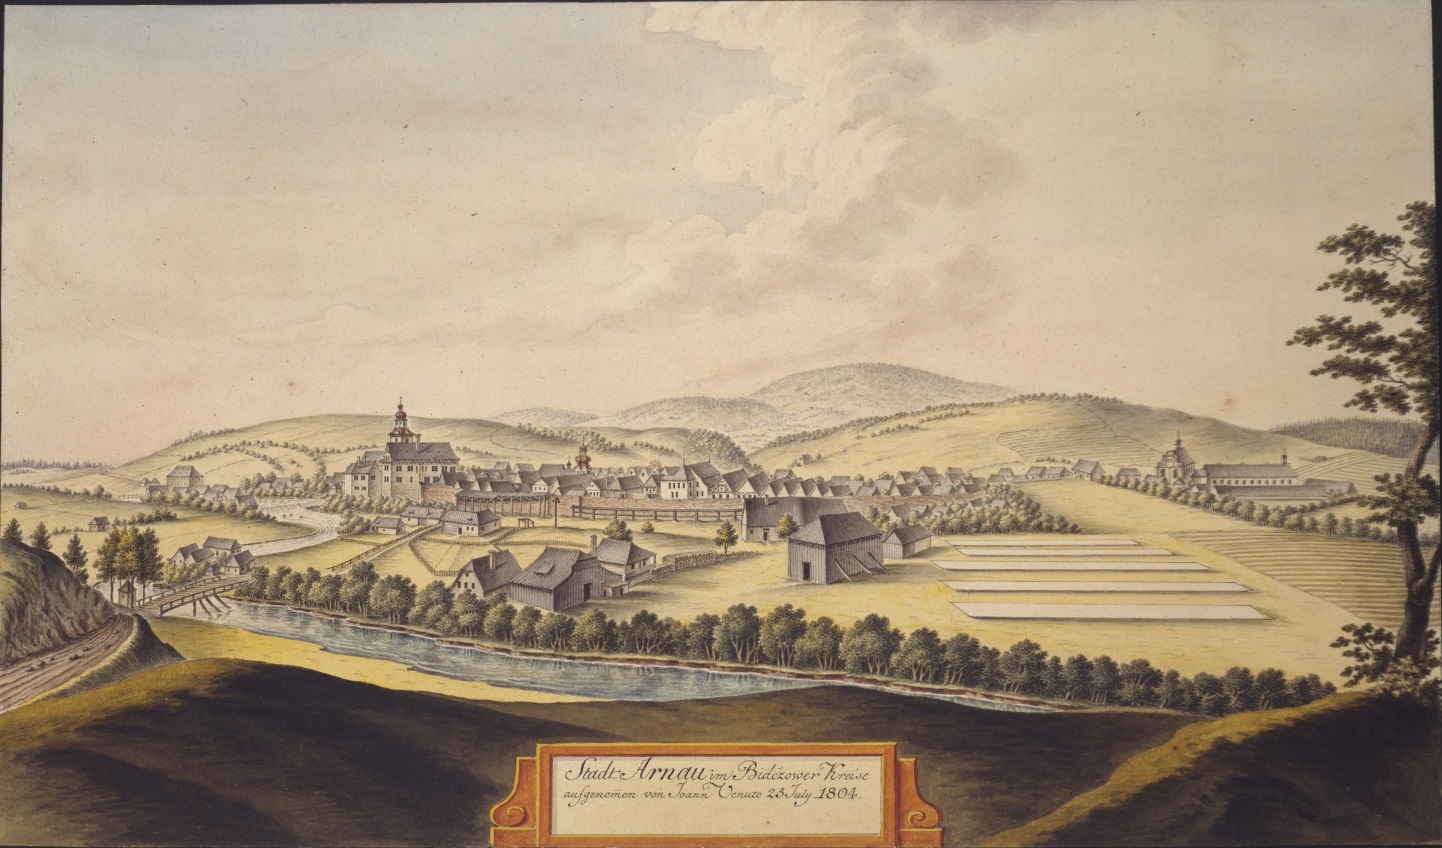 Stadt Arnau im Bidčzower Kreise
aufgenom̄en von Joann Venuto 25 July 1804.